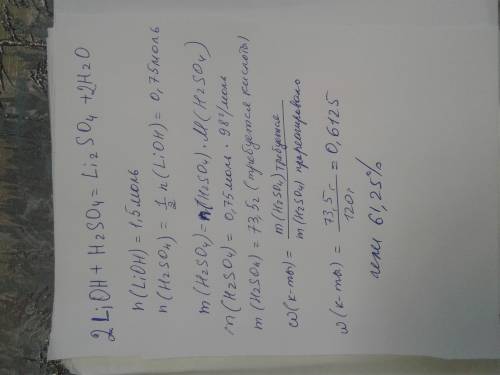 2LiOH + H2SO4 = Li2SO4 + 2H2O
n(LiOH) = 1,5моль
n(H2SO4) = 1/2 n(LiOH) = 0,75моль
m(H2SO4) = n(H2SO4) · M(H2SO4)
m(H2SO4) = 0,75моль · 98г/моль
m(H2SO4) = 73,5г (требуется кислоты)
ω(к-ты) = m(H2SO4) требуется / m(H2SO4) прореагировало
ω(к-ты) = 73,5г / 120г = 0,6125
или 61,25%